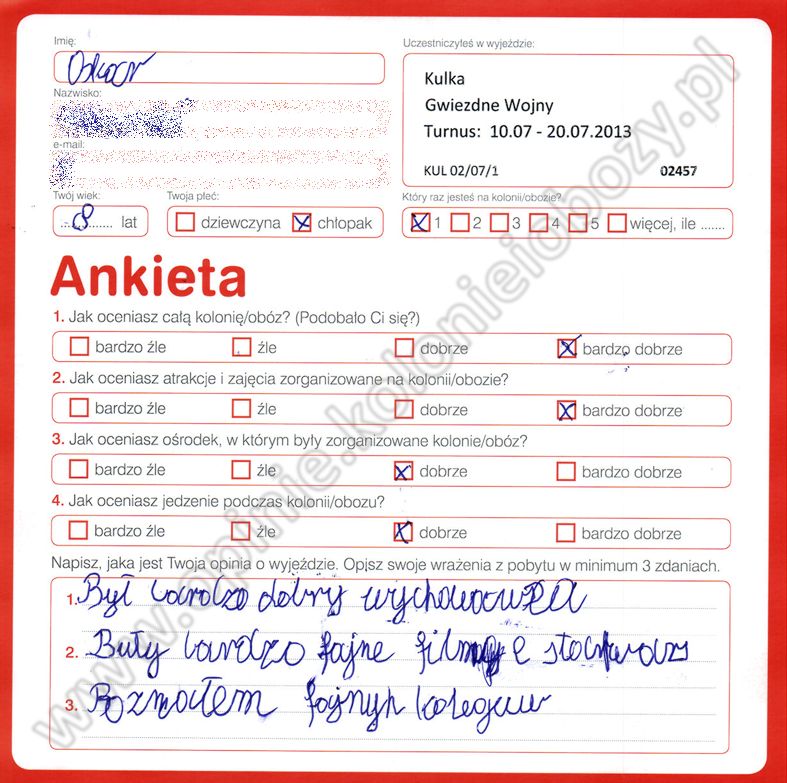 Imię:
Oskar
Uczestniczyłeś w wyjeździe:
Kulka
Gwiezdne Wojny
Turnus: 10.07 - 20.07.2013
KUL 02/07/1 02457
Nazwisko:
e-mail:
Twój wiek: Twoja płeć: Który raz jesteś na kolonii/obozie?
8 lat dziewczyna chłopak 1 2 3 4 5 więcej, ile .......
Ankieta
1. Jak oceniasz całą kolonię/obóz? (Podobało Ci się?)
bardzo źle źle dobrze bardzo dobrze
2. Jak oceniasz atrakcje i zajęcia zorganizowane na kolonii/obozie?
bardzo źle źle dobrze bardzo dobrze
3. Jak oceniasz ośrodek, w którym były zorganizowane kolonie/obóz?
bardzo źle źle dobrze bardzo dobrze
4. Jak oceniasz jedzenie podczas kolonii/obozu?
bardzo źle źle dobrze bardzo dobrze
Napisz, jaka jest Twoja opinia o wyjeździe. Opisz swoje wrażenia z pobytu w minimum 3 zdaniach.
1. Był bardzo dobry wychowawca
2. Były bardzo fajne
3. Poznałem fajnyh koleguw
www.opinie.kolonieiobozy.pl